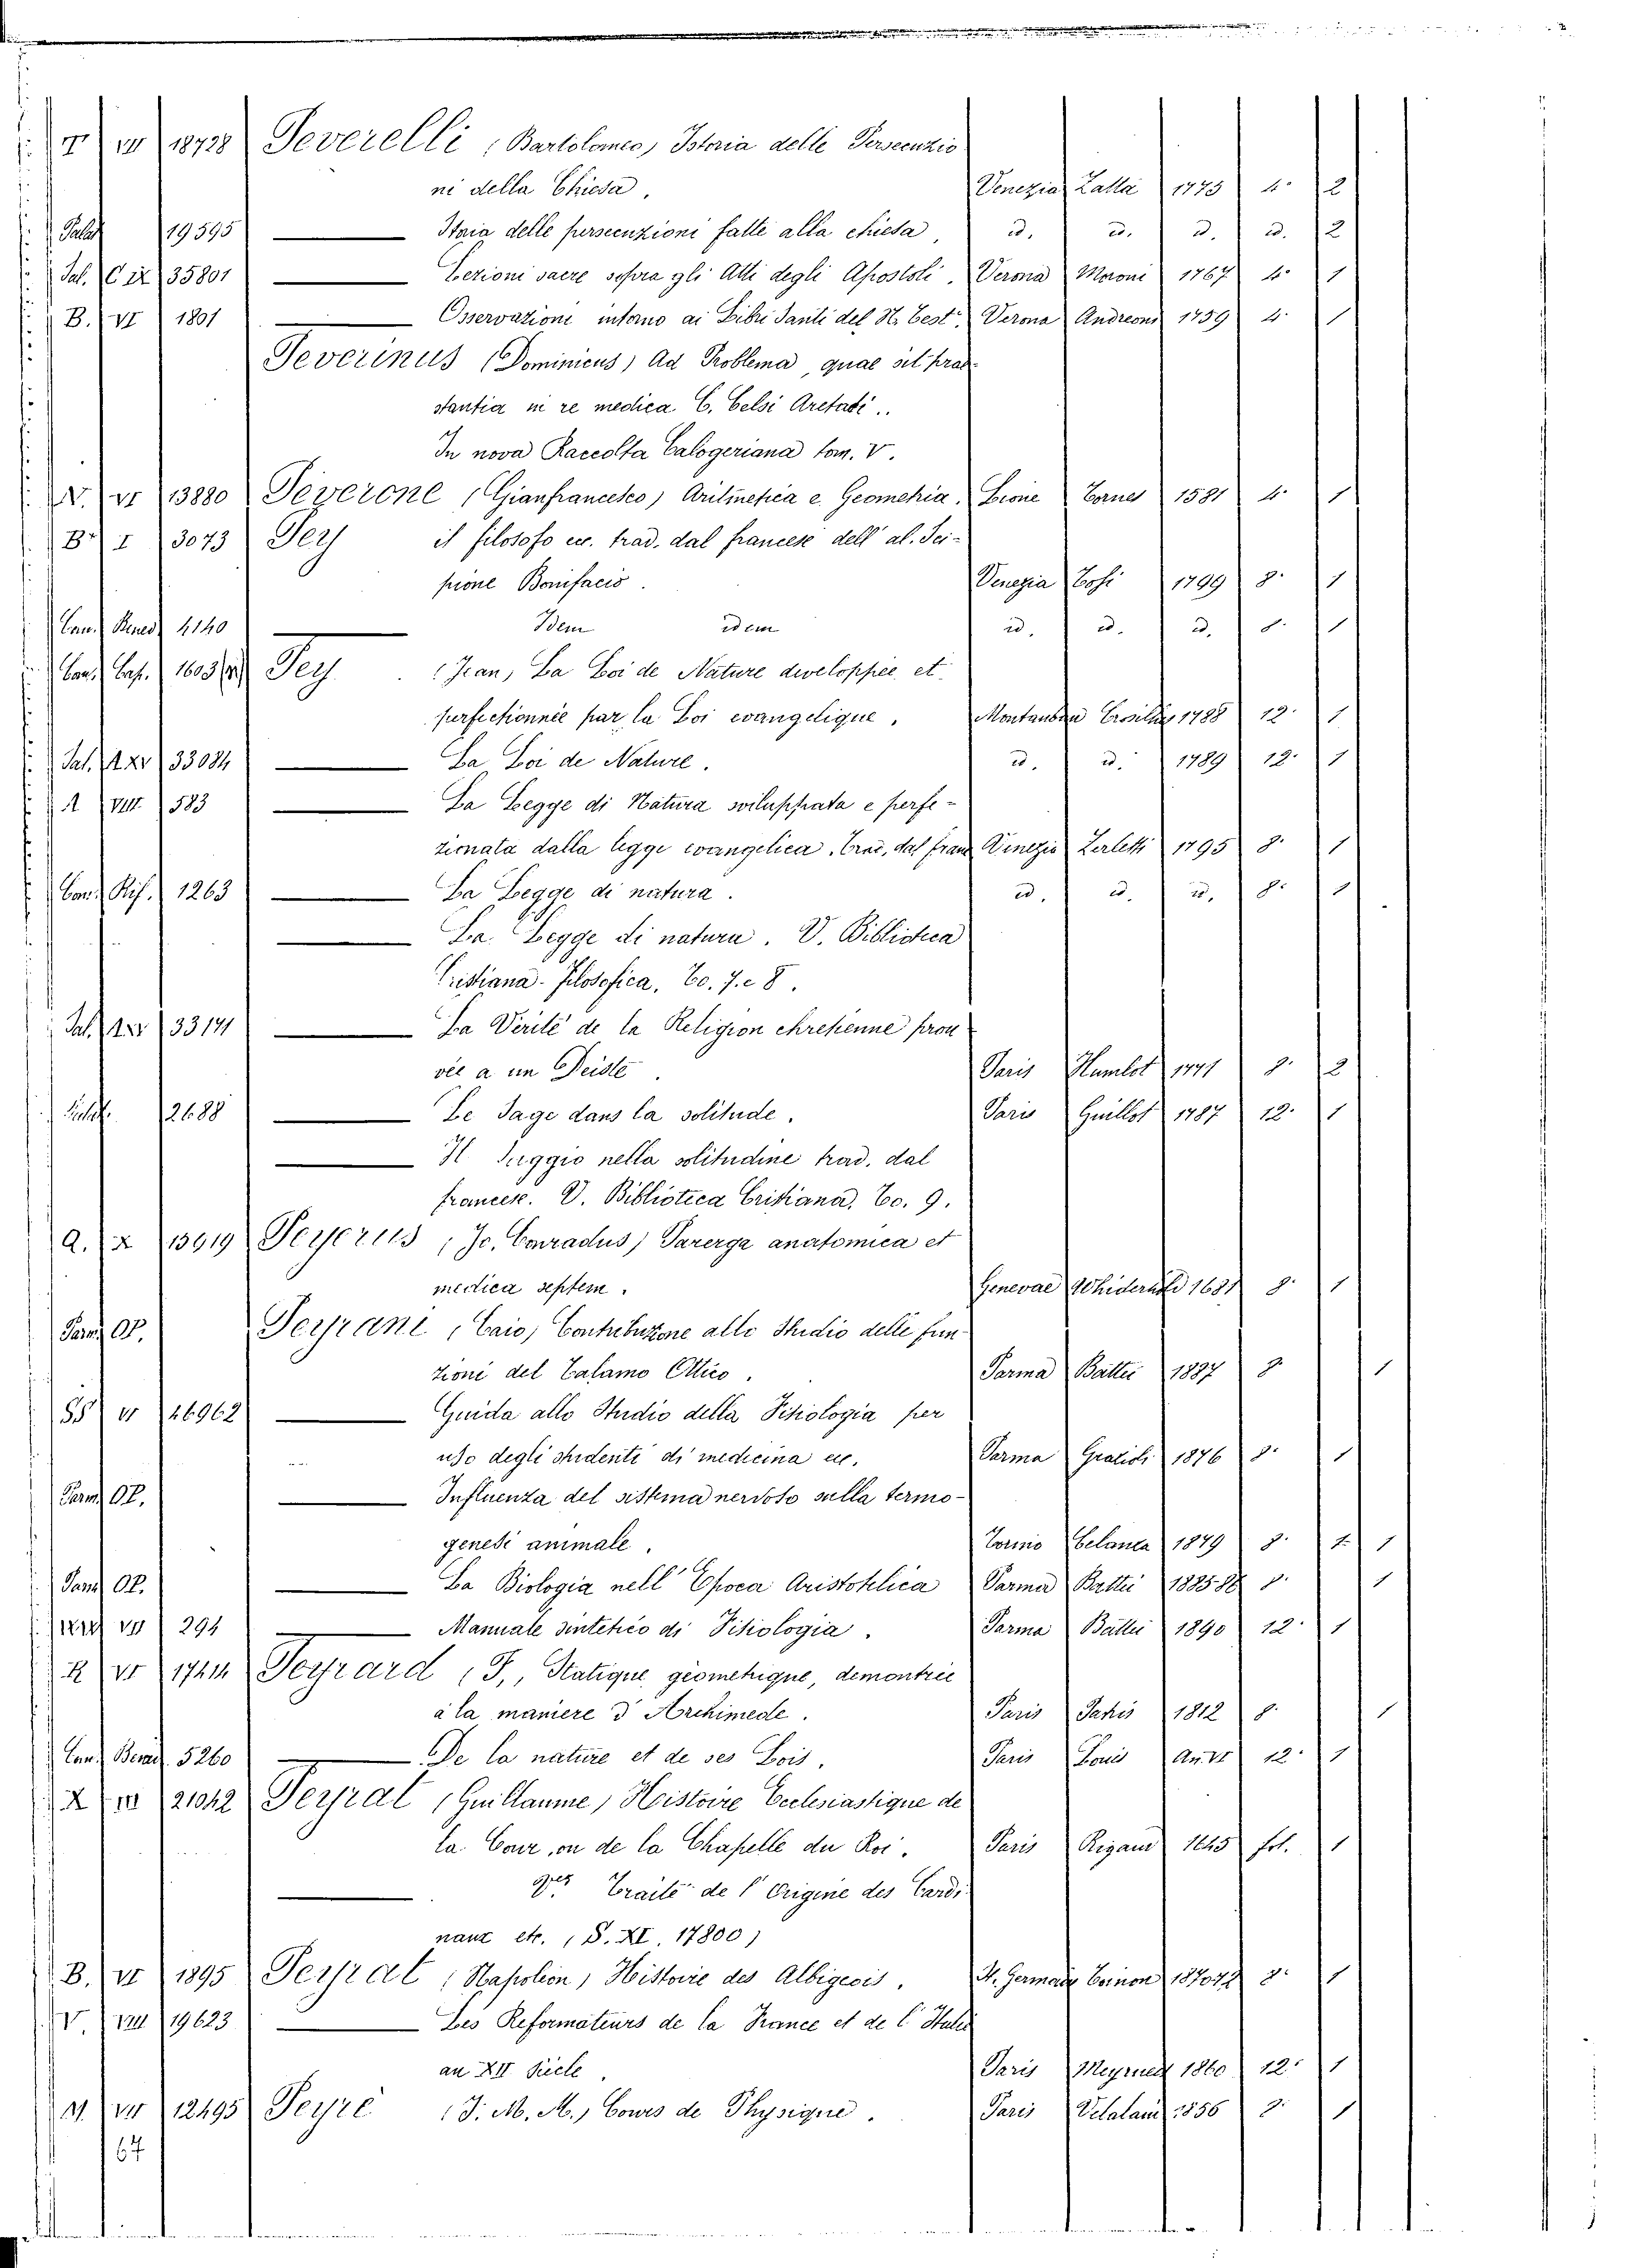 T VII 18728 Peverelli (Bartolomeo) Istoria delle Persecuzio
ni della Chiesa. Venezia Zatta 1775 4° 2
Palat 19595 Storia delle persecuzioni fatte alla chiesa, id. id. id. id. 2
Sal. C IX 35801 Lezioni sacre sopra gli Atti degli Apostoli. Verona Moroni 1767 4° 1
B. VI 1801 Osservazioni intorno ai Libri Santi del N. Test°. Verona Andreoni 1759 4° 1
Peverinus (Dominicus) Ad Problema, quae sit prae
stantia in re medica C. Celsi Aretaei..
In nova Raccolta Calogeriana tom. V.
N. VI 13880 Peverone (Gianfrancesco) Aritmetica e Geometria. Lione Tornes 1581 4° 1
B. I 3073 Pey il filosofo ecc. trad. dal francese dell' ab. Sci-
pione Bonifacio. Venezia Tosi 1799 8° 1
Can. Bened. 4140 Idem idem id. id. id. 8° 1
Can. Cap. 1603 Pey (Jean) La Loi de Nature developpée et
perfectionnée par la Loi evangelique. Montauban 1788 12° 1
Sal. A XV 33084 La Loi de Nature. id. id. 1789 12° 1
A VIII 583 La Legge di Natura sviluppata e perfe-
zionata dalla legge evangelica. Trad. dal fran Venezia Zerletti 1795 8° 1
Can. Rif. 1263 La Legge di natura. id. id. id. 8° 1
La Legge di natura. V. Biblioteca
Cristiana-Filosofica, To. 7. e 8.
Sal. A XV 33141 La Verité de la Religion chretienne prou
vée a un Deiste. Paris Humblot 1771 8° 2
Palat. 2688 Le Sage dans la solitude. Paris Guillot 1787 12° 1
Il Saggio nella solitudine trad. dal
francese. V. Biblioteca Cristiana, To. 9.
Q. X 13619 Peyerus (Jo. Conradus) Parerga anatomica et
medica septem. Genevae 1681 8° 1
Parm. Op. Peyrani (Caio) Contribuzione allo Studio delle fun
zioni del Talamo Ottico. Parma Battei 1887 8° 1
SS VI 26962 Guida allo Studio della Fisiologia per
uso degli studenti di medicina ecc. Parma Grazioli 1876 8° 1
Parm. Op. Influenza del sistema nervoso sulla termo-
genesi animale. Torino Celanza 1879 8° 1
Parm. Op. La Biologia nell' Epoca Aristotelica Parma Battei 1885-86 8° 1
VII 294 Manuale sintetico di Fisiologia. Parma Battei 1890 12° 1
R VI 17414 Peyrard (F.), Statique géometrique, demontrée
à la maniere d'Archimede. Paris Patris 1812 8° 1
Can. Bened. 5260 De la nature et de ses Lois. Paris Louis An. VI 12° 1
X VII 21042 Peyrat (Guillaume) Histoire Ecclesiastique de
la Cour, ou de la Chapelle du Roi. Paris Rigaud 1645 fol. 1
Traité de l'Origine des Cardi
naux etc. (S. XI. 17800)
B. VI 1895 Peyrat (Napoléon) Histoire des Albigeois. St. Germain Toinon 1870-72 8° 1
V. VIII 19623 Les Reformateurs de la France et de l'Italie
au XII Siècle. Paris Meyrueis 1860 12° 1
M. VII 12495 Peyré (J. M. M.) Cours de Physique. Paris Delalain 1856 8° 1
67